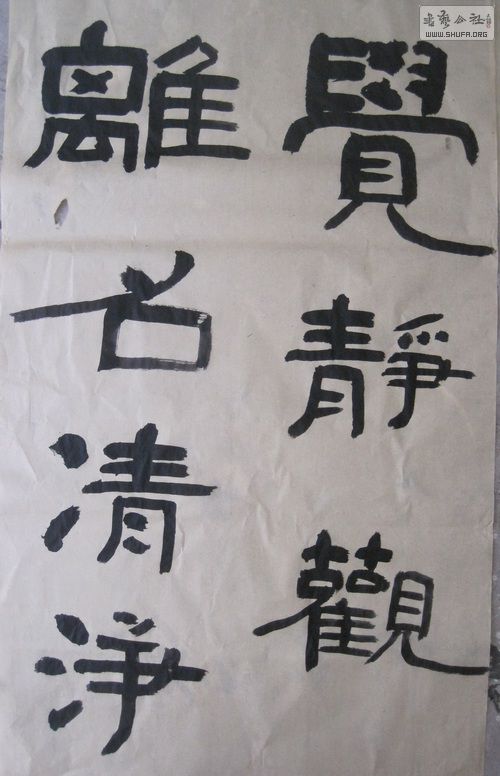 覺靜觀
離名清淨
書藝公社
WWW.SHUFA.ORG